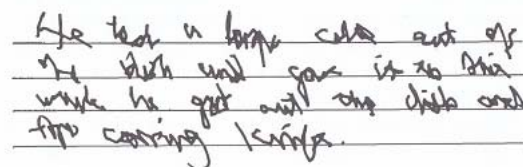 He took a large cake out of
the dish and gave it to Alice
while he got out the dish and
two carving knifes.